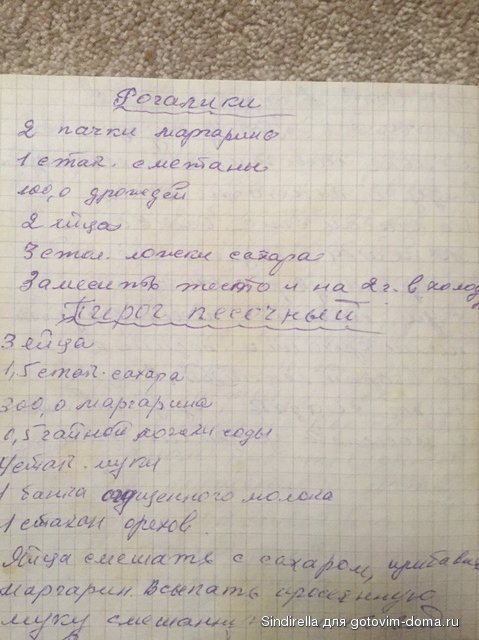 Рогалики
2 пачки маргарина
1 стак. сметаны
100,0 дрожжей
2 яйца
3 стол. ложки сахара
Замесить тесто и на 2 г. в холод
Пирог песочный
3 яйца
1,5 стак. сахара
300,0 маргарина
0,5 чайной ложки соды
4 стак. муки
1 банка сгущенного молока
1 стакан орехов.
Яйца смешать с сахаром, прибавить
маргарин. Всыпать просеянную
муку
Sindirella для gotovim-doma.ru